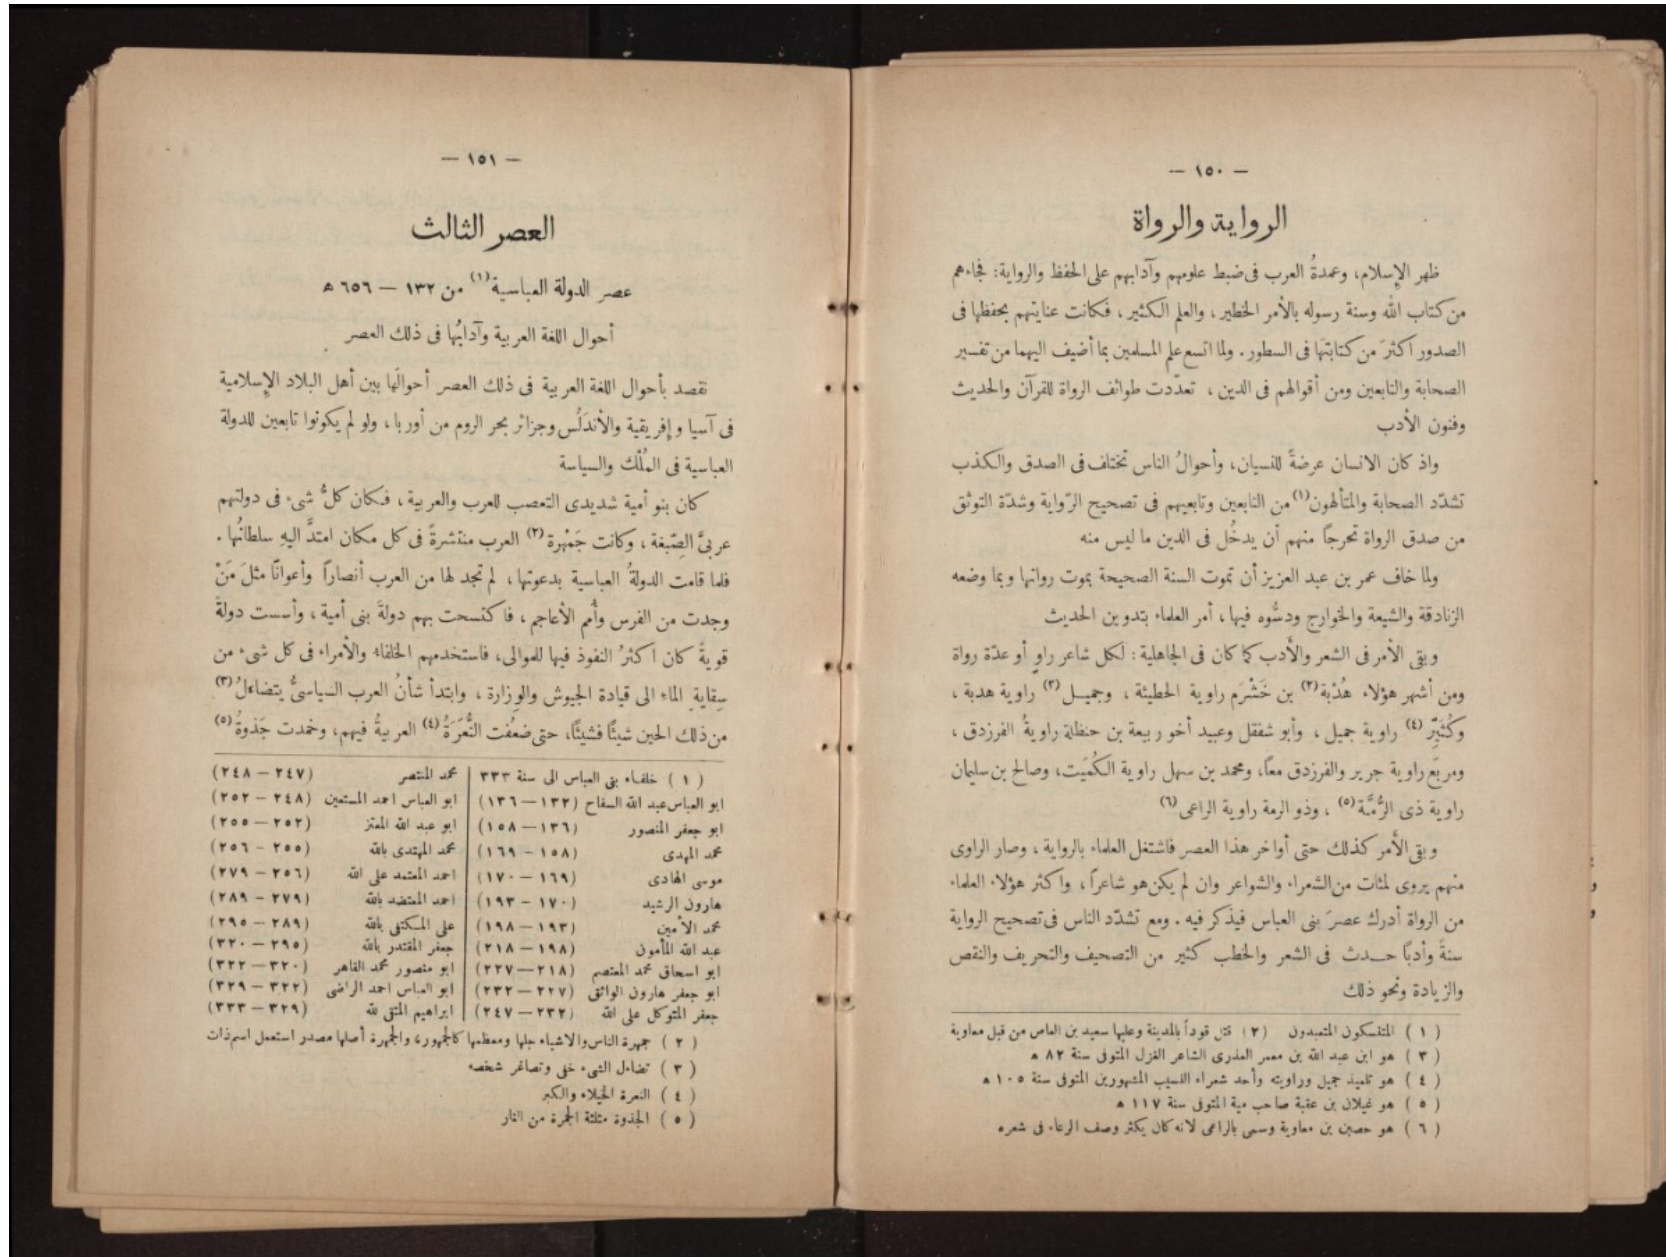 — ١٥٠ —
الرواية والرواة
ظهر الإسلام، وعمدةُ العرب فى ضبط علومهم وآدابهم على الحفظ والرواية: فجاءهم
من كتاب الله وسنة رسوله بالأمر الخطير، والعلم الكثير، فكانت عنايتهم بحفظها فى
الصدور اكثرَ من كتابتها فى السطور. ولما اتسع علم المسلمين بما أضيف اليهما من تفسير
الصحابة والتابعين ومن أقوالهم فى الدين، تعدّدت طوائف الرواة للقرآن والحديث
وفنون الأدب
واذ كان الانسان عرضةً للنسيان، وأحوالُ الناس تختلف فى الصدق والكذب
تشدّد الصحابة والمتألهون(١) من التابعين وتابعيهم فى تصحيح الرّواية وشدّة التوثق
من صدق الرواة تحرجاً منهم أن يدخُل فى الدين ما ليس منه
ولما خاف عمر بن عبد العزيز أن تموت السنة الصحيحة بموت رواتها وبما وضعه
الزنادقة والشيعة والخوارج ودسُّوه فيها، أمر العلماء بتدوين الحديث
وبقى الأمر فى الشعر والأدب كما كان فى الجاهلية: لكل شاعر راوٍ أو عدّة رواة
ومن أشهر هؤلاء هُدْبة(٢) بن خَشْرَم راوية الحطيئة، وجميل(٣) راوية هدبة،
وكُثَيِّر(٤) راوية جميل، وأبو شفقل وعبيد أخو ربيعة بن حنظلة راويةُ الفرزدق،
ومربَع راوية جرير والفرزدق معاً، ومحمد بن سهل راوية الكُمَيت، وصالح بن سليمان
راوية ذى الرُّمَّة(٥)، وذو الرمة راوية الراعى(٦)
وبقى الأمر كذلك حتى أواخر هذا العصر فاشتغل العلماء بالرواية، وصار الراوى
منهم يروى لمئات من الشعراء والشواعر وان لم يكن هو شاعراً، واكثر هؤلاء العلماء
من الرواة أدرك عصرَ بنى العباس فيذكر فيه. ومع تشدّد الناس فى تصحيح الرواية
سنةً وأدبًا حدث فى الشعر والخطب كثير من التصحيف والتحريف والنقص
والزيادة ونحو ذلك
(١) المتنسكون المتعبدون (٢) قتل قوداً بالمدينة وعليها سعيد بن العاص من قبل معاوية
(٣) هو ابن عبد الله بن معمر العذرى الشاعر الغزل المتوفى سنة ٨٢ ھ
(٤) هو تلميذ جميل وراويته وأحد شعراء النسيب المشهورين المتوفى سنة ١٠٥ ھ
(٥) هو غيلان بن عقبة صاحب مية المتوفى سنة ١١٧ ھ
(٦) هو حصين بن معاوية وسمى بالراعى لانه كان يكثر وصف الرعاء فى شعره
— ١٥١ —
العصر الثالث
عصر الدولة العباسية(١) من ١٣٢ — ٦٥٦ ھ
أحوال اللغة العربية وآدابُها فى ذلك العصر
نقصد بأحوال اللغة العربية فى ذلك العصر أحوالَها بين أهل البلاد الإسلامية
فى آسيا وإفريقية والأندَلُس وجزائر بحر الروم من أوربا، ولو لم يكونوا تابعين للدولة
العباسية فى المُلْك والسياسة
كان بنو أمية شديدى التعصب للعرب والعربية، فكان كلُّ شىء فى دولتهم
عربىَّ الصِّبغة، وكانت جَمْهرة(٢) العرب منتشرةً فى كل مكان امتدَّ اليهِ سلطانُها.
فلما قامت الدولةُ العباسية بدعوتها، لم تجد لها من العرب أنصاراً وأعوانًا مثلَ مَنْ
وجدت من الفرس وأُمم الأعاجم، فاكتسحت بهم دولةَ بنى أمية، وأسست دولةً
قويةً كان اكثرُ النفوذ فيها للموالى، فاستخدمهم الخلفاء والأمراء فى كل شىء من
سِقايةِ الماء الى قيادة الجيوش والوِزارة، وابتدأ شأنُ العرب السياسىُّ يتضاءلُ(٣)
من ذلك الحين شيئًا فشيئًا، حتى ضعُفت النُّعَرَةُ(٤) العربيةُ فيهم، وخمدت جَذوةُ(٥)
(١) خلفاء بنى العباس الى سنة ٣٣٣
ابو العباس عبد الله السفاح (١٣٢—١٣٦)
ابو جعفر المنصور (١٣٦—١٥٨)
محمد المهدى (١٥٨-١٦٩)
موسى الهادى (١٦٩-١٧٠)
هارون الرشيد (١٧٠-١٩٣)
محمد الأمين (١٩٣-١٩٨)
عبد الله المأمون (١٩٨-٢١٨)
ابو اسحاق محمد المعتصم (٢١٨—٢٢٧)
ابو جعفر هارون الواثق (٢٢٧—٢٣٢)
جعفر المتوكل على الله (٢٣٢—٢٤٧)
محمد المنتصر (٢٤٧—٢٤٨)
ابو العباس احمد المستعين (٢٤٨—٢٥٢)
ابو عبد الله المعتز (٢٥٢—٢٥٥)
محمد المهتدى بالله (٢٥٥-٢٥٦)
احمد المعتمد على الله (٢٥٦—٢٧٩)
احمد المعتضد بالله (٢٧٩-٢٨٩)
على المكتفى بالله (٢٨٩-٢٩٥)
جعفر المقتدر بالله (٢٩٥-٣٢٠)
ابو منصور محمد القاهر (٣٢٠—٣٢٢)
ابو العباس احمد الراضى (٣٢٢—٣٢٩)
ابراهيم المتقى لله (٣٢٩—٣٣٣)
(٢) جمهرة الناس والاشياء جلها ومعظمها كالجمهور، والجمهرة أصلها مصدر استعمل اسم ذات
(٣) تضاءل الشىء خفى وتصاغر شخصه
(٤) النعرة الخيلاء والكبر
(٥) الجذوة مثلثة الجمرة من النار